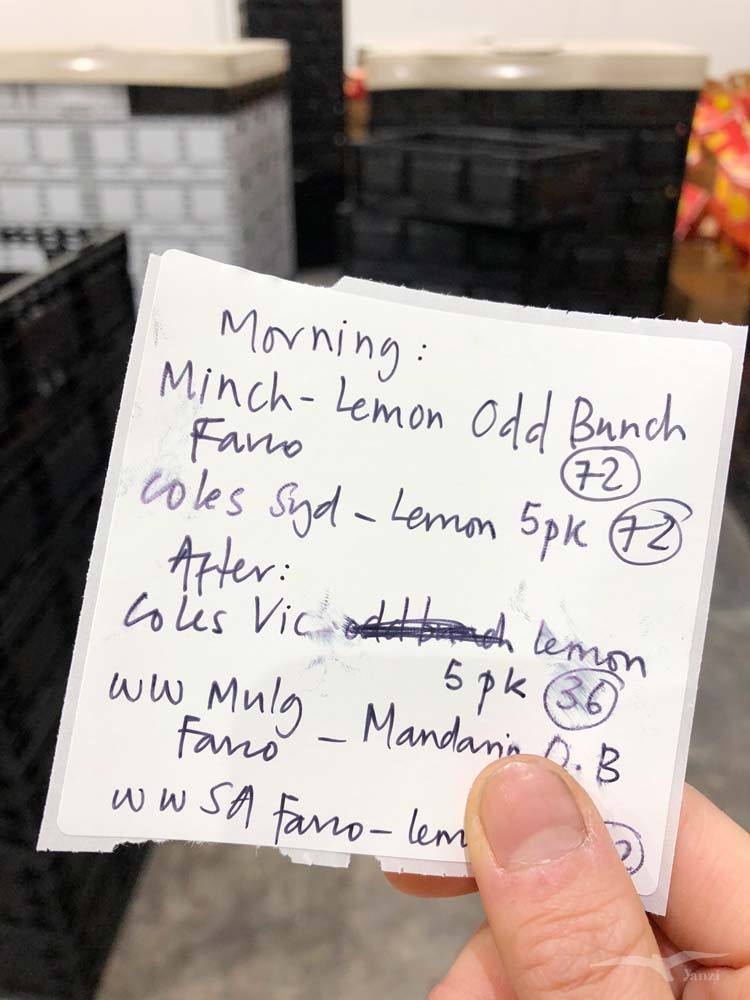 Morning:
Minch - Lemon Odd Bunch
Farro
72
Coles Syd - Lemon 5pk 72
After:
Coles Vic lemon
5pk 36
WW Mulg
Farro - Mandarin O.B
WW SA Farro - lem
Yanzi